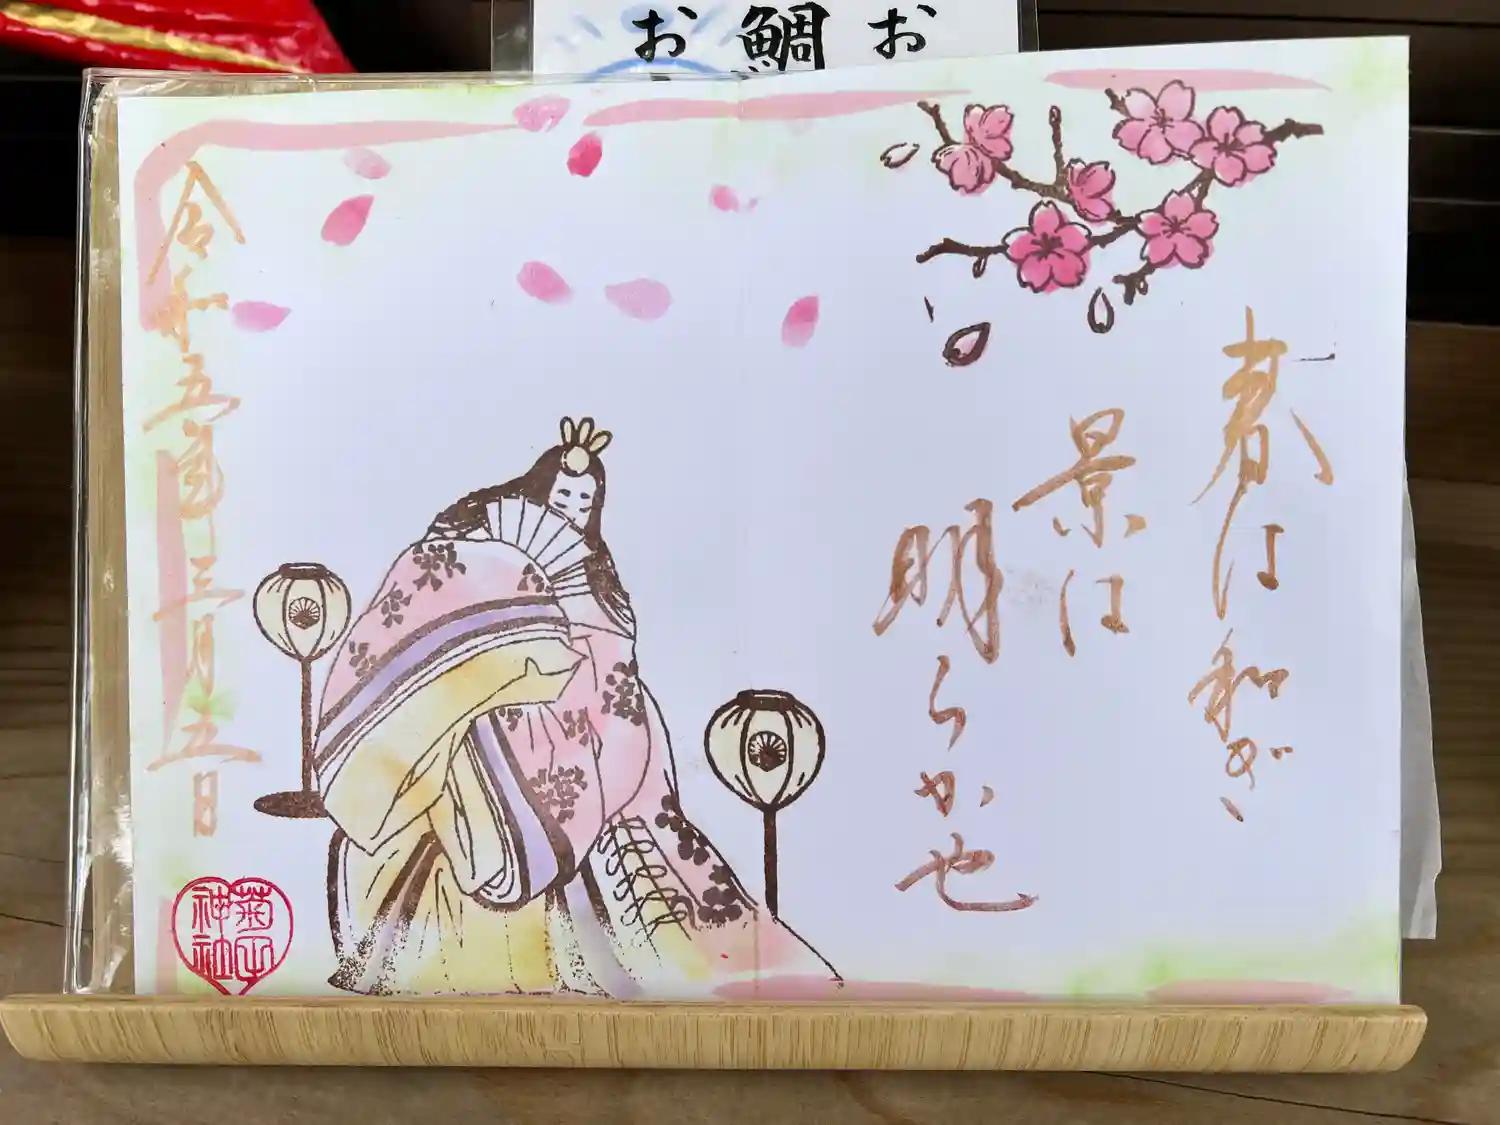 お
鯛
お
春は和ぎ
景は
明らか也
令和五年三月五日
菊
神社